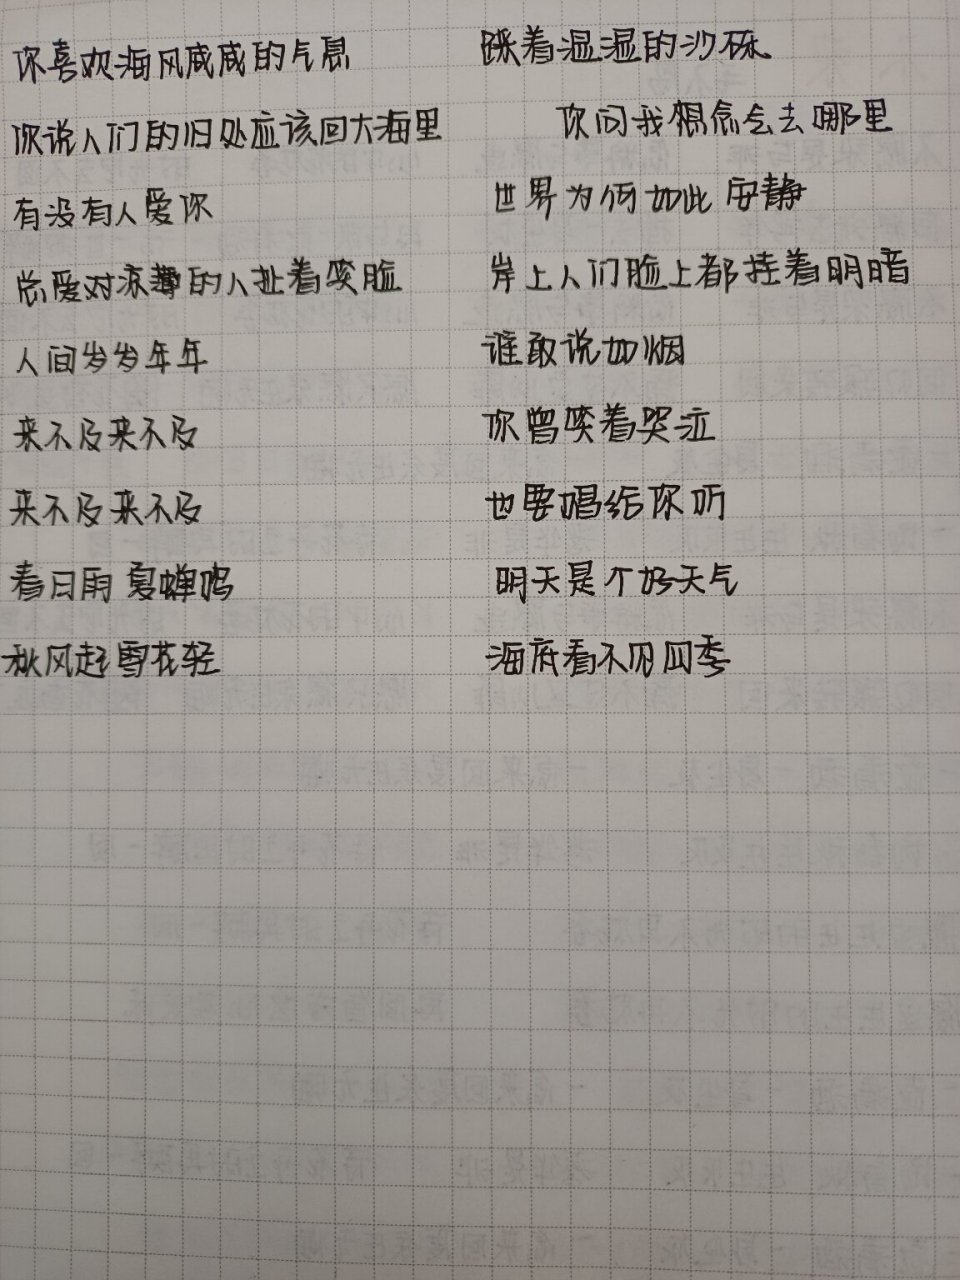 你喜欢海风咸咸的气息 踩着湿湿的沙砾
你说人们的归处应该回大海里 你问我想念会去哪里
有没有人爱你 世界为何如此安静
总爱对凉薄的人扯着笑脸 岸上人们脸上都挂着明暗
人间岁岁年年 谁敢说如烟
来不及来不及 你曾笑着哭泣
来不及来不及 也要唱给你听
春日雨 夏蝉鸣 明天是个好天气
秋风起雪花轻 海底看不见四季